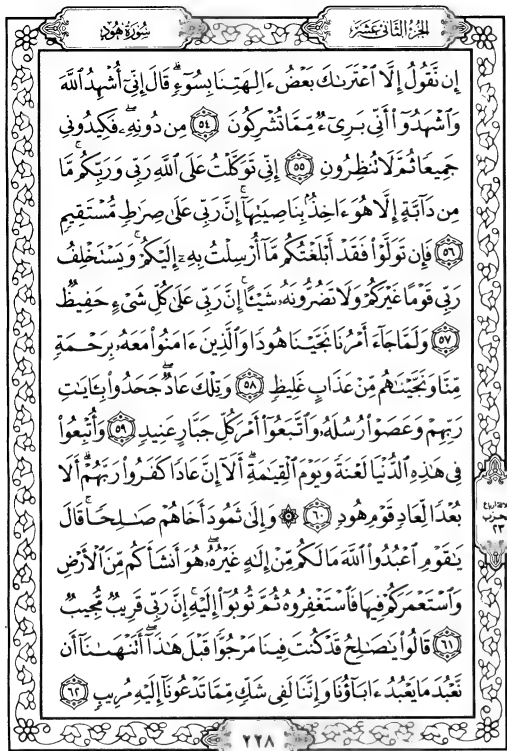 الجزء الثاني عشر
سورة هود
إِن نَّقُولُ إِلَّا ٱعْتَرَىٰكَ بَعْضُ ءَالِهَتِنَا بِسُوٓءٍ ۗ قَالَ إِنِّىٓ أُشْهِدُ ٱللَّهَ
وَٱشْهَدُوٓا۟ أَنِّى بَرِىٓءٌ مِّمَّا تُشْرِكُونَ ٥٤ مِن دُونِهِۦ ۖ فَكِيدُونِى
جَمِيعًا ثُمَّ لَا تُنظِرُونِ ٥٥ إِنِّى تَوَكَّلْتُ عَلَى ٱللَّهِ رَبِّى وَرَبِّكُم ۚ مَّا
مِن دَآبَّةٍ إِلَّا هُوَ ءَاخِذٌۢ بِنَاصِيَتِهَآ ۚ إِنَّ رَبِّى عَلَىٰ صِرَٰطٍ مُّسْتَقِيمٍ
٥٦ فَإِن تَوَلَّوْا۟ فَقَدْ أَبْلَغْتُكُم مَّآ أُرْسِلْتُ بِهِۦٓ إِلَيْكُمْ ۚ وَيَسْتَخْلِفُ
رَبِّى قَوْمًا غَيْرَكُمْ وَلَا تَضُرُّونَهُۥ شَيْـًٔا ۚ إِنَّ رَبِّى عَلَىٰ كُلِّ شَىْءٍ حَفِيظٌ
٥٧ وَلَمَّا جَآءَ أَمْرُنَا نَجَّيْنَا هُودًا وَٱلَّذِينَ ءَامَنُوا۟ مَعَهُۥ بِرَحْمَةٍ
مِّنَّا وَنَجَّيْنَٰهُم مِّنْ عَذَابٍ غَلِيظٍ ٥٨ وَتِلْكَ عَادٌ ۖ جَحَدُوا۟ بِـَٔايَٰتِ
رَبِّهِمْ وَعَصَوْا۟ رُسُلَهُۥ وَٱتَّبَعُوٓا۟ أَمْرَ كُلِّ جَبَّارٍ عَنِيدٍ ٥٩ وَأُتْبِعُوا۟
فِى هَٰذِهِ ٱلدُّنْيَا لَعْنَةً وَيَوْمَ ٱلْقِيَٰمَةِ ۗ أَلَآ إِنَّ عَادًا كَفَرُوا۟ رَبَّهُمْ ۗ أَلَا
بُعْدًا لِّعَادٍ قَوْمِ هُودٍ ٦٠ ۞ وَإِلَىٰ ثَمُودَ أَخَاهُمْ صَٰلِحًا ۚ قَالَ
يَٰقَوْمِ ٱعْبُدُوا۟ ٱللَّهَ مَا لَكُم مِّنْ إِلَٰهٍ غَيْرُهُۥ ۖ هُوَ أَنشَأَكُم مِّنَ ٱلْأَرْضِ
وَٱسْتَعْمَرَكُمْ فِيهَا فَٱسْتَغْفِرُوهُ ثُمَّ تُوبُوٓا۟ إِلَيْهِ ۚ إِنَّ رَبِّى قَرِيبٌ مُّجِيبٌ
٦١ قَالُوا۟ يَٰصَٰلِحُ قَدْ كُنتَ فِينَا مَرْجُوًّا قَبْلَ هَٰذَآ ۖ أَتَنْهَىٰنَآ أَن
نَّعْبُدَ مَا يَعْبُدُ ءَابَآؤُنَا وَإِنَّنَا لَفِى شَكٍّ مِّمَّا تَدْعُونَآ إِلَيْهِ مُرِيبٍ ٦٢
حزب
٢٣
٢٢٨